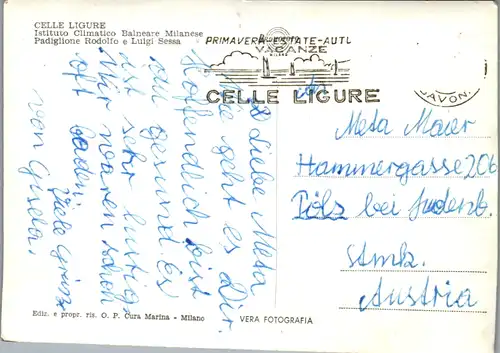 CELLE LIGURE
Istituto Climatico Balneare Milanese
Padiglione Rodolfo e Luigi Sessa
PRIMAVERA-ESTATE-AUTU
VACANZE
CELLE LIGURE
SAVON
Liebe Meta
Wie geht es Dir.
Hoffendlich bist
du gesund es
ist sehr lustig,
Wir waren schon
oft baden.
Viele Grüße
von Gisela.
Meta Maier
Hammergasse 206
Pöls bei Judenb.
Stmk.
Austria
Ediz. e propr. ris. O. P. Cura Marina - Milano
VERA FOTOGRAFIA